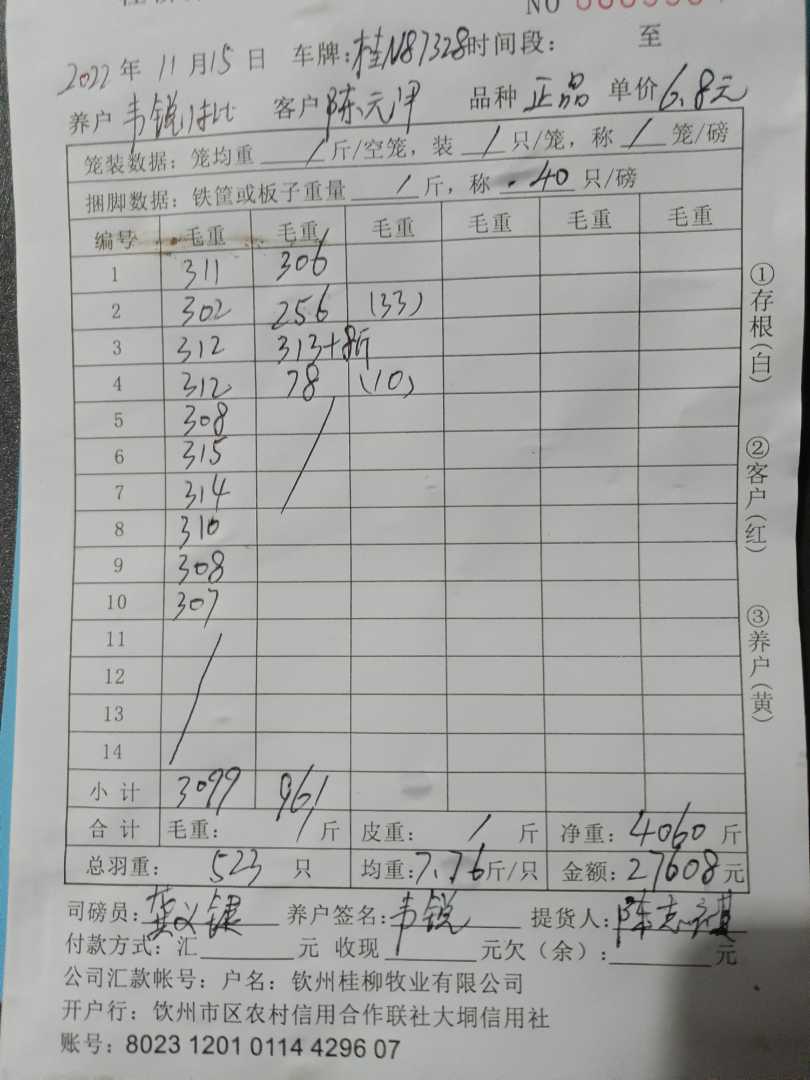 NO
2022年 11月15日 车牌:桂N87328时间段: 至
养户 韦锐 客户 陈元甲 品种 正品 单价 6.8元
笼装数据:笼均重 / 斤/空笼,装 / 只/笼,称 / 笼/磅
捆脚数据:铁筐或板子重量 / 斤,称 40 只/磅
编号 毛重 毛重 毛重 毛重 毛重 毛重
1 311 306
2 302 256 (33)
3 312 313+8斤
4 312 78 (10)
5 308
6 315
7 314
8 310
9 308
10 307
11
12
13
14
小计 3099 961
合计 毛重: / 斤 皮重: / 斤 净重: 4060 斤
总羽重: 523 只 均重:7.76斤/只 金额:27608元
司磅员: 养户签名:韦锐 提货人:陈志
付款方式:汇 元 收现 元欠(余): 元
公司汇款帐号:户名:钦州桂柳牧业有限公司
开户行:钦州市区农村信用合作联社大垌信用社
账号:8023 1201 0114 4296 07
①存根(白)
②客户(红)
③养户(黄)